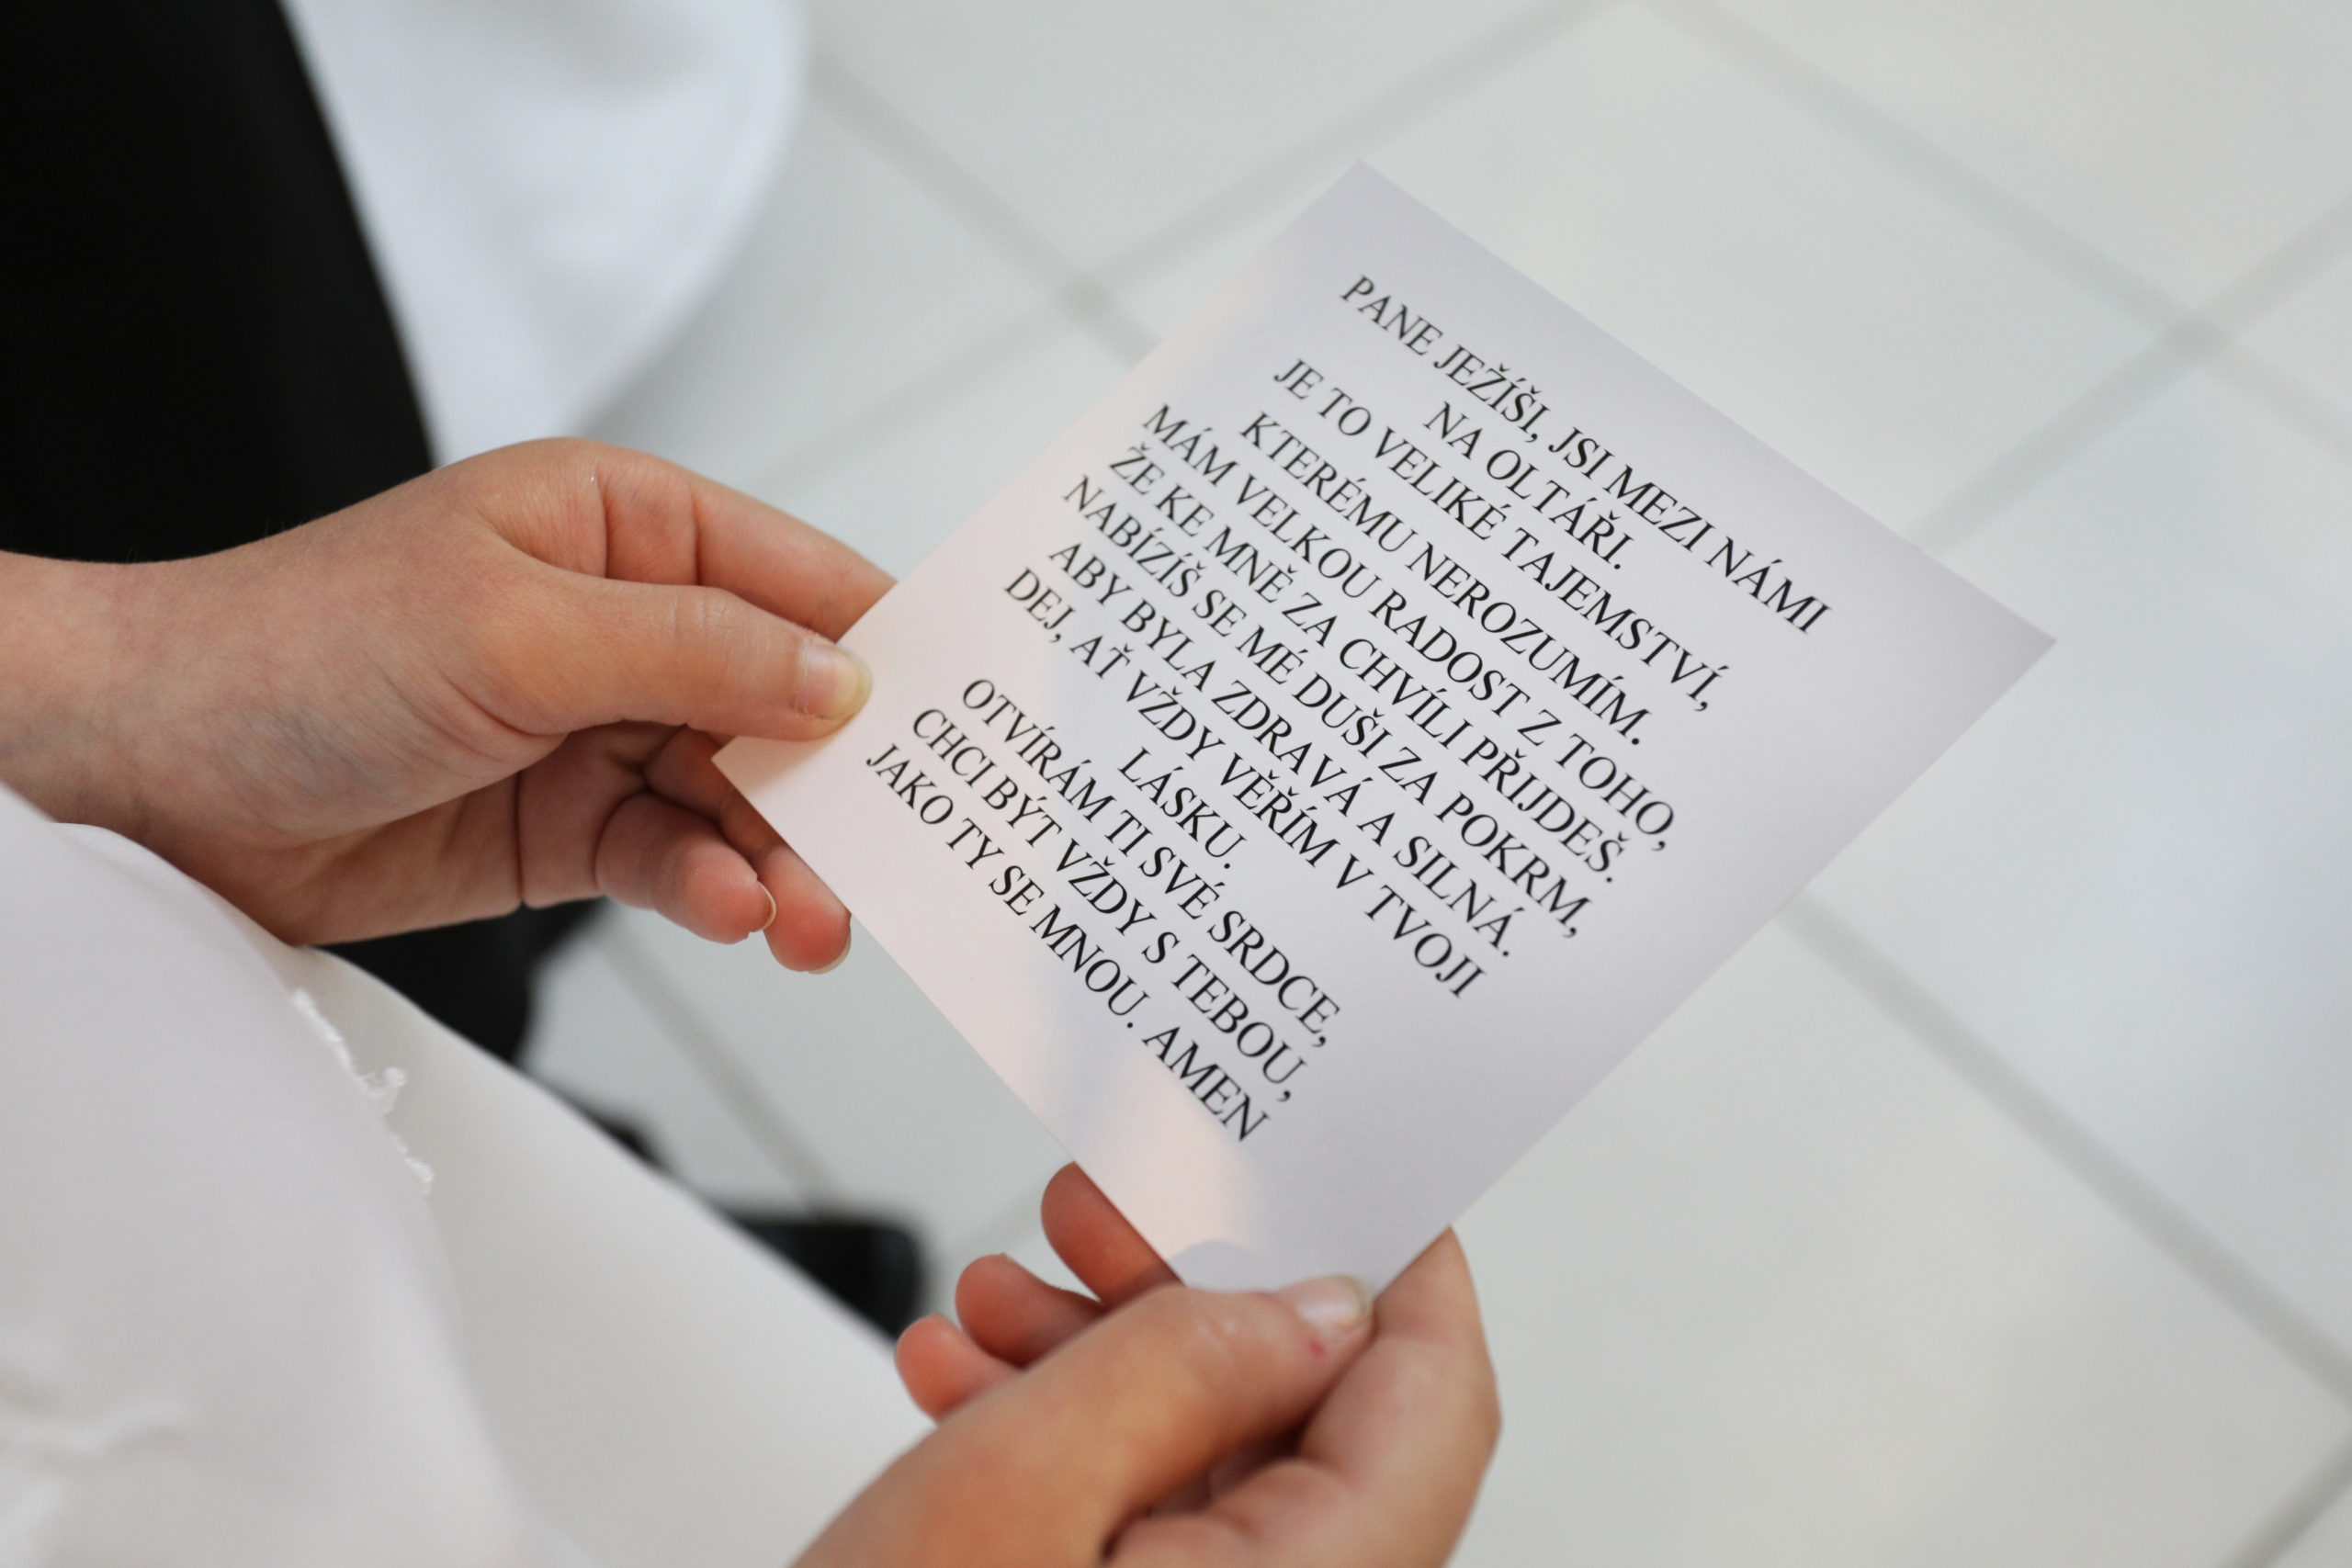 PANE JEŽÍŠI, JSI MEZI NÁMI
NA OLTÁŘI.
JE TO VELIKÉ TAJEMSTVÍ,
KTERÉMU NEROZUMÍM.
MÁM VELKOU RADOST Z TOHO,
ŽE KE MNĚ ZA CHVÍLI PŘIJDEŠ.
NABÍZÍŠ SE MÉ DUŠI ZA POKRM,
ABY BYLA ZDRAVÁ A SILNÁ.
DEJ, AŤ VŽDY VĚŘÍM V TVOJI
LÁSKU.
OTVÍRÁM TI SVÉ SRDCE,
CHCI BÝT VŽDY S TEBOU,
JAKO TY SE MNOU. AMEN